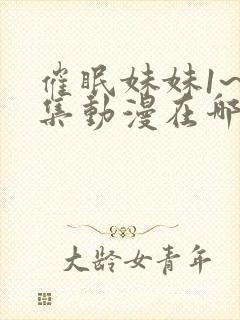 催眠妹妹1~
集動漫在哪
大龄女青年